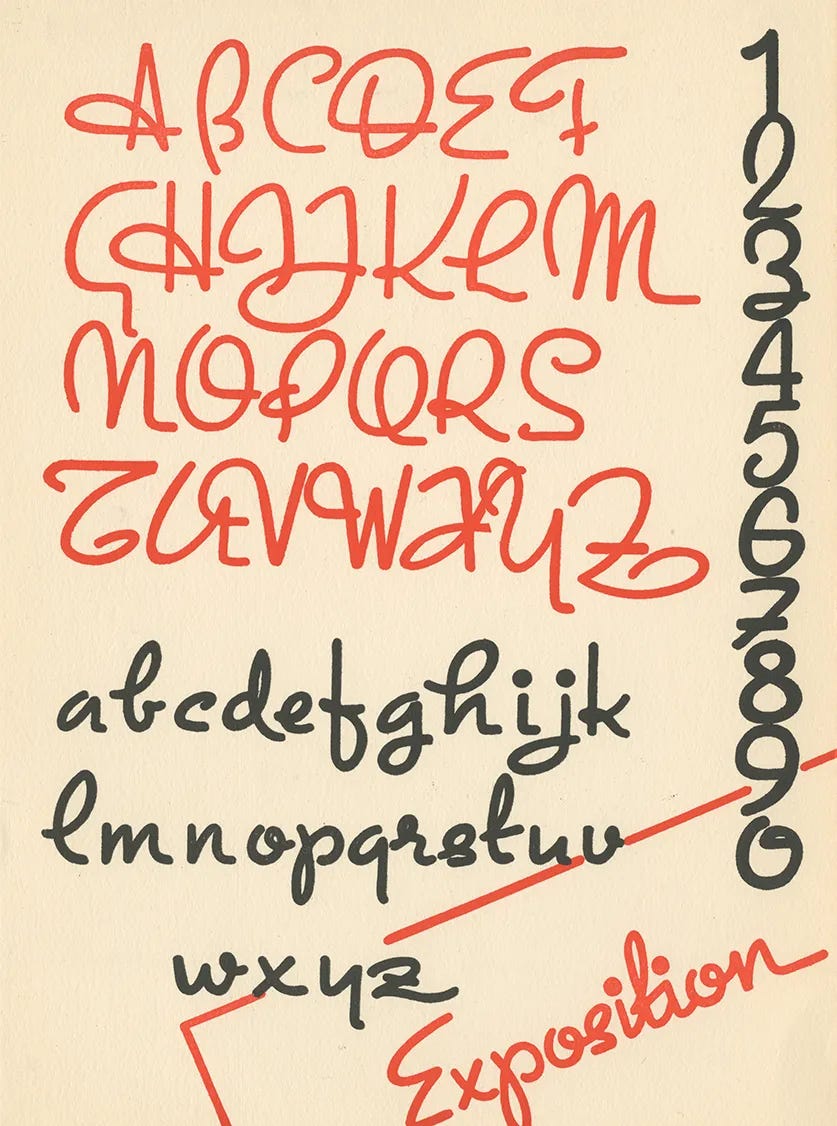 ABCDEF
GHIJKLM
NOPQRS
TUVWXYZ
abcdefghijk
lmnopqrstuv
wxyz
1234567890
Exposition